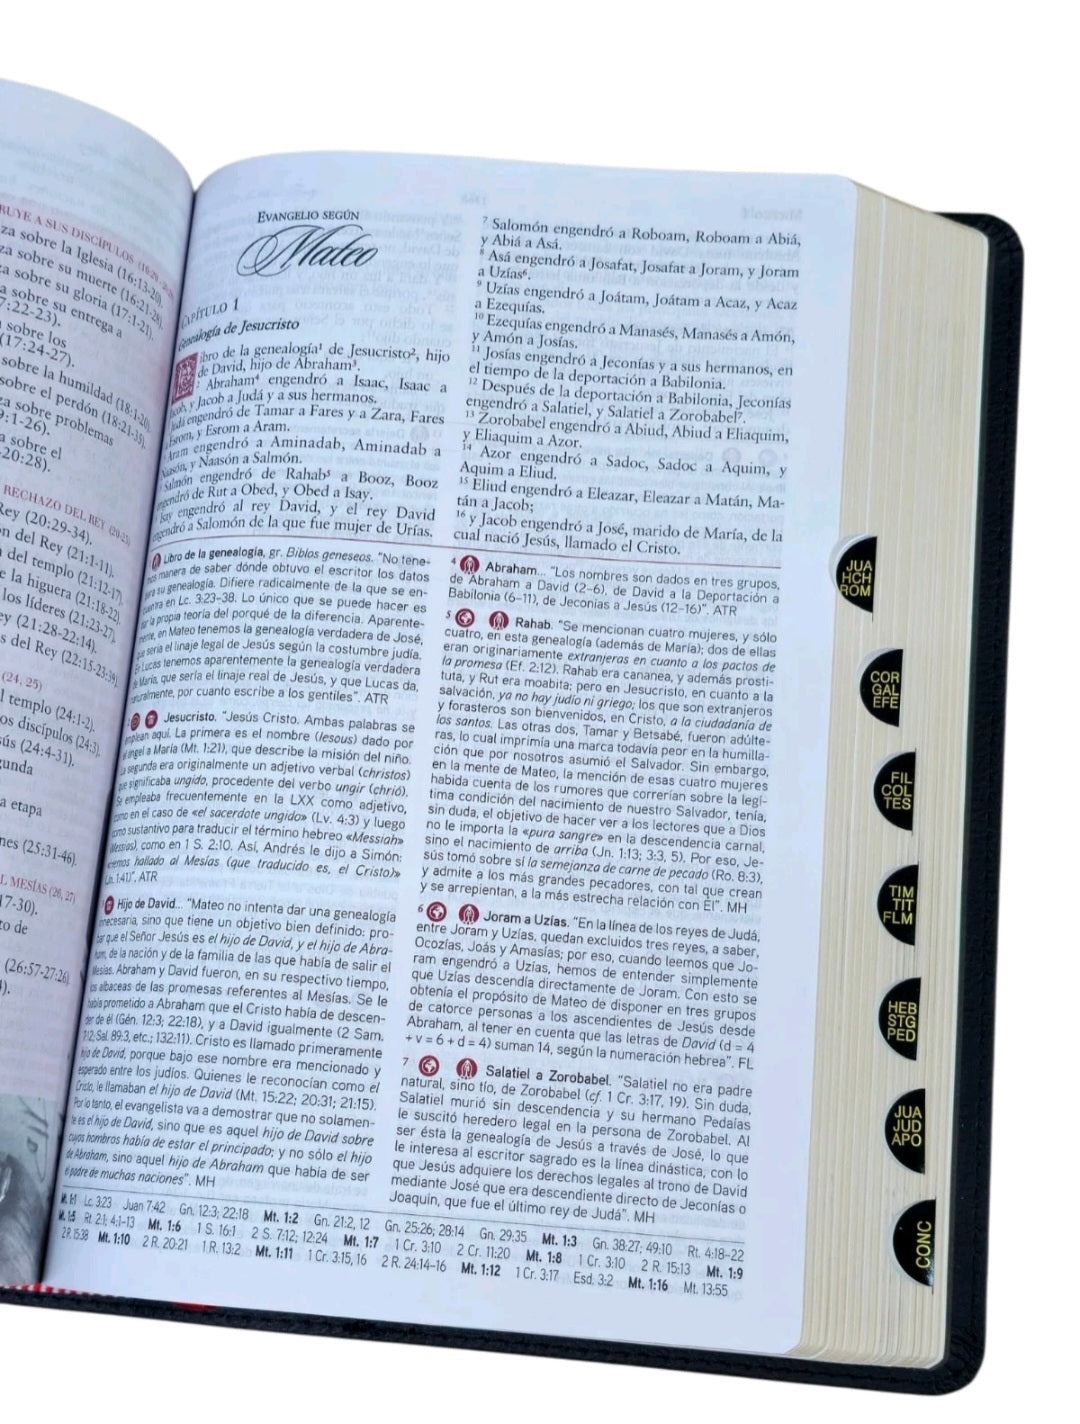 RUYE A SUS DISCÍPULOS
za sobre la Iglesia (16:13-20).
za sobre su muerte (16:21-28).
za sobre su gloria (17:1-21).
a sobre su entrega a
7:22-23).
sobre los
(17:24-27).
sobre la humildad (18:1-20).
sobre el perdón (18:21-35).
za sobre problemas
9:1-26).
a sobre el
-20:28).
RECHAZO DEL REY
Rey (20:29-34).
ón del Rey (21:1-11).
del templo (21:12-17).
e la higuera (21:18-22).
los líderes (21:23-27).
ey (21:28-22:14).
s del Rey (22:15-23:39).
(24, 25)
l templo (24:1-2).
os discípulos (24:3).
sús (24:4-31).
gunda
a etapa
nes (25:31-46).
L MESÍAS (26, 27)
17-30).
to de
(26:57-27:26).
EVANGELIO SEGÚN
Mateo
CAPÍTULO 1
Genealogía de Jesucristo
Libro de la genealogía¹ de Jesucristo², hijo
de David, hijo de Abraham³.
² Abraham⁴ engendró a Isaac, Isaac a
Jacob, y Jacob a Judá y a sus hermanos.
Judá engendró de Tamar a Fares y a Zara, Fares
Esrom, y Esrom a Aram.
Aram engendró a Aminadab, Aminadab a
Naasón, y Naasón a Salmón.
Salmón engendró de Rahab⁵ a Booz, Booz
engendró de Rut a Obed, y Obed a Isay.
Isay engendró al rey David, y el rey David
engendró a Salomón de la que fue mujer de Urías.
⁷ Salomón engendró a Roboam, Roboam a Abiá,
y Abiá a Asá.
⁸ Asá engendró a Josafat, Josafat a Joram, y Joram
a Uzías⁶.
⁹ Uzías engendró a Joátam, Joátam a Acaz, y Acaz
a Ezequías.
¹⁰ Ezequías engendró a Manasés, Manasés a Amón,
y Amón a Josías.
¹¹ Josías engendró a Jeconías y a sus hermanos, en
el tiempo de la deportación a Babilonia.
¹² Después de la deportación a Babilonia, Jeconías
engendró a Salatiel, y Salatiel a Zorobabel⁷.
¹³ Zorobabel engendró a Abiud, Abiud a Eliaquim,
y Eliaquim a Azor.
¹⁴ Azor engendró a Sadoc, Sadoc a Aquim, y
Aquim a Eliud.
¹⁵ Eliud engendró a Eleazar, Eleazar a Matán, Ma-
tán a Jacob;
¹⁶ y Jacob engendró a José, marido de María, de la
cual nació Jesús, llamado el Cristo.
Libro de la genealogía, gr. Biblos geneseos. “No tene-
mos manera de saber dónde obtuvo el escritor los datos
para su genealogía. Difiere radicalmente de la que se en-
cuentra en Lc. 3:23-38. Lo único que se puede hacer es
dar la propia teoría del porqué de la diferencia. Aparente-
mente, en Mateo tenemos la genealogía verdadera de José,
que sería el linaje legal de Jesús según la costumbre judía.
En Lucas tenemos aparentemente la genealogía verdadera
de María, que sería el linaje real de Jesús, y que Lucas da,
naturalmente, por cuanto escribe a los gentiles”. ATR
Jesucristo. “Jesús Cristo. Ambas palabras se
emplean aquí. La primera es el nombre (Iesous) dado por
el ángel a María (Mt. 1:21), que describe la misión del niño.
La segunda era originalmente un adjetivo verbal (christos)
que significaba ungido, procedente del verbo ungir (chrió).
Se empleaba frecuentemente en la LXX como adjetivo,
como en el caso de «el sacerdote ungido» (Lv. 4:3) y luego
como sustantivo para traducir el término hebreo «Messiah»
(Mesías), como en 1 S. 2:10. Así, Andrés le dijo a Simón:
«Hemos hallado al Mesías (que traducido es, el Cristo)»
(Jn. 1:41)”. ATR
Hijo de David... “Mateo no intenta dar una genealogía
innecesaria, sino que tiene un objetivo bien definido: pro-
bar que el Señor Jesús es el hijo de David, y el hijo de Abra-
ham, de la nación y de la familia de las que había de salir el
Mesías. Abraham y David fueron, en su respectivo tiempo,
los albaceas de las promesas referentes al Mesías. Se le
había prometido a Abraham que el Cristo había de descen-
der de él (Gén. 12:3; 22:18), y a David igualmente (2 Sam.
7:12; Sal. 89:3, etc.; 132:11). Cristo es llamado primeramente
hijo de David, porque bajo ese nombre era mencionado y
esperado entre los judíos. Quienes le reconocían como el
Cristo, le llamaban el hijo de David (Mt. 15:22; 20:31; 21:15).
Por lo tanto, el evangelista va a demostrar que no solamen-
te es el hijo de David, sino que es aquel hijo de David sobre
cuyos hombros había de estar el principado; y no sólo el hijo
de Abraham, sino aquel hijo de Abraham que había de ser
el padre de muchas naciones”. MH
⁴ Abraham... “Los nombres son dados en tres grupos,
de Abraham a David (2-6), de David a la Deportación a
Babilonia (6-11), de Jeconías a Jesús (12-16)”. ATR
⁵ Rahab. “Se mencionan cuatro mujeres, y sólo
cuatro, en esta genealogía (además de María); dos de ellas
eran originariamente extranjeras en cuanto a los pactos de
la promesa (Ef. 2:12). Rahab era cananea, y además prosti-
tuta, y Rut era moabita; pero en Jesucristo, en cuanto a la
salvación, ya no hay judío ni griego; los que son extranjeros
y forasteros son bienvenidos, en Cristo, a la ciudadanía de
los santos. Las otras dos, Tamar y Betsabé, fueron adúlte-
ras, lo cual imprimía una marca todavía peor en la humilla-
ción que por nosotros asumió el Salvador. Sin embargo,
en la mente de Mateo, la mención de esas cuatro mujeres
habida cuenta de los rumores que correrían sobre la legí-
tima condición del nacimiento de nuestro Salvador, tenía,
sin duda, el objetivo de hacer ver a los lectores que a Dios
no le importa la «pura sangre» en la descendencia carnal,
sino el nacimiento de arriba (Jn. 1:13; 3:3, 5). Por eso, Je-
sús tomó sobre sí la semejanza de carne de pecado (Ro. 8:3),
y admite a los más grandes pecadores, con tal que crean
y se arrepientan, a la más estrecha relación con Él”. MH
⁶ Joram a Uzías. “En la línea de los reyes de Judá,
entre Joram y Uzías, quedan excluidos tres reyes, a saber,
Ocozías, Joás y Amasías; por eso, cuando leemos que Jo-
ram engendró a Uzías, hemos de entender simplemente
que Uzías descendía directamente de Joram. Con esto se
obtenía el propósito de Mateo de disponer en tres grupos
de catorce personas a los ascendientes de Jesús desde
Abraham, al tener en cuenta que las letras de David (d = 4
+ v = 6 + d = 4) suman 14, según la numeración hebrea”. FL
⁷ Salatiel a Zorobabel. “Salatiel no era padre
natural, sino tío, de Zorobabel (cf. 1 Cr. 3:17, 19). Sin duda,
Salatiel murió sin descendencia y su hermano Pedaías
le suscitó heredero legal en la persona de Zorobabel. Al
ser ésta la genealogía de Jesús a través de José, lo que
le interesa al escritor sagrado es la línea dinástica, con lo
que Jesús adquiere los derechos legales al trono de David
mediante José que era descendiente directo de Jeconías o
Joaquín, que fue el último rey de Judá”. MH
Mt. 1:1 Lc. 3:23 Juan 7:42 Gn. 12:3; 22:18 Mt. 1:2 Gn. 21:2, 12 Gn. 25:26; 28:14 Gn. 29:35 Mt. 1:3 Gn. 38:27; 49:10 Rt. 4:18-22
Mt. 1:5 Rt. 2:1; 4:1-13 Mt. 1:6 1 S. 16:1 2 S. 7:12; 12:24 Mt. 1:7 1 Cr. 3:10 2 Cr. 11:20 Mt. 1:8 1 Cr. 3:10 2 R. 15:13 Mt. 1:9
2 R. 15:38 Mt. 1:10 2 R. 20:21 1 R. 13:2 Mt. 1:11 1 Cr. 3:15, 16 2 R. 24:14-16 Mt. 1:12 1 Cr. 3:17 Esd. 3:2 Mt. 1:16 Mt. 13:55
JUA
HCH
ROM
COR
GAL
EFE
FIL
COL
TES
TIM
TIT
FLM
HEB
STG
PED
JUA
JUD
APO
CONC